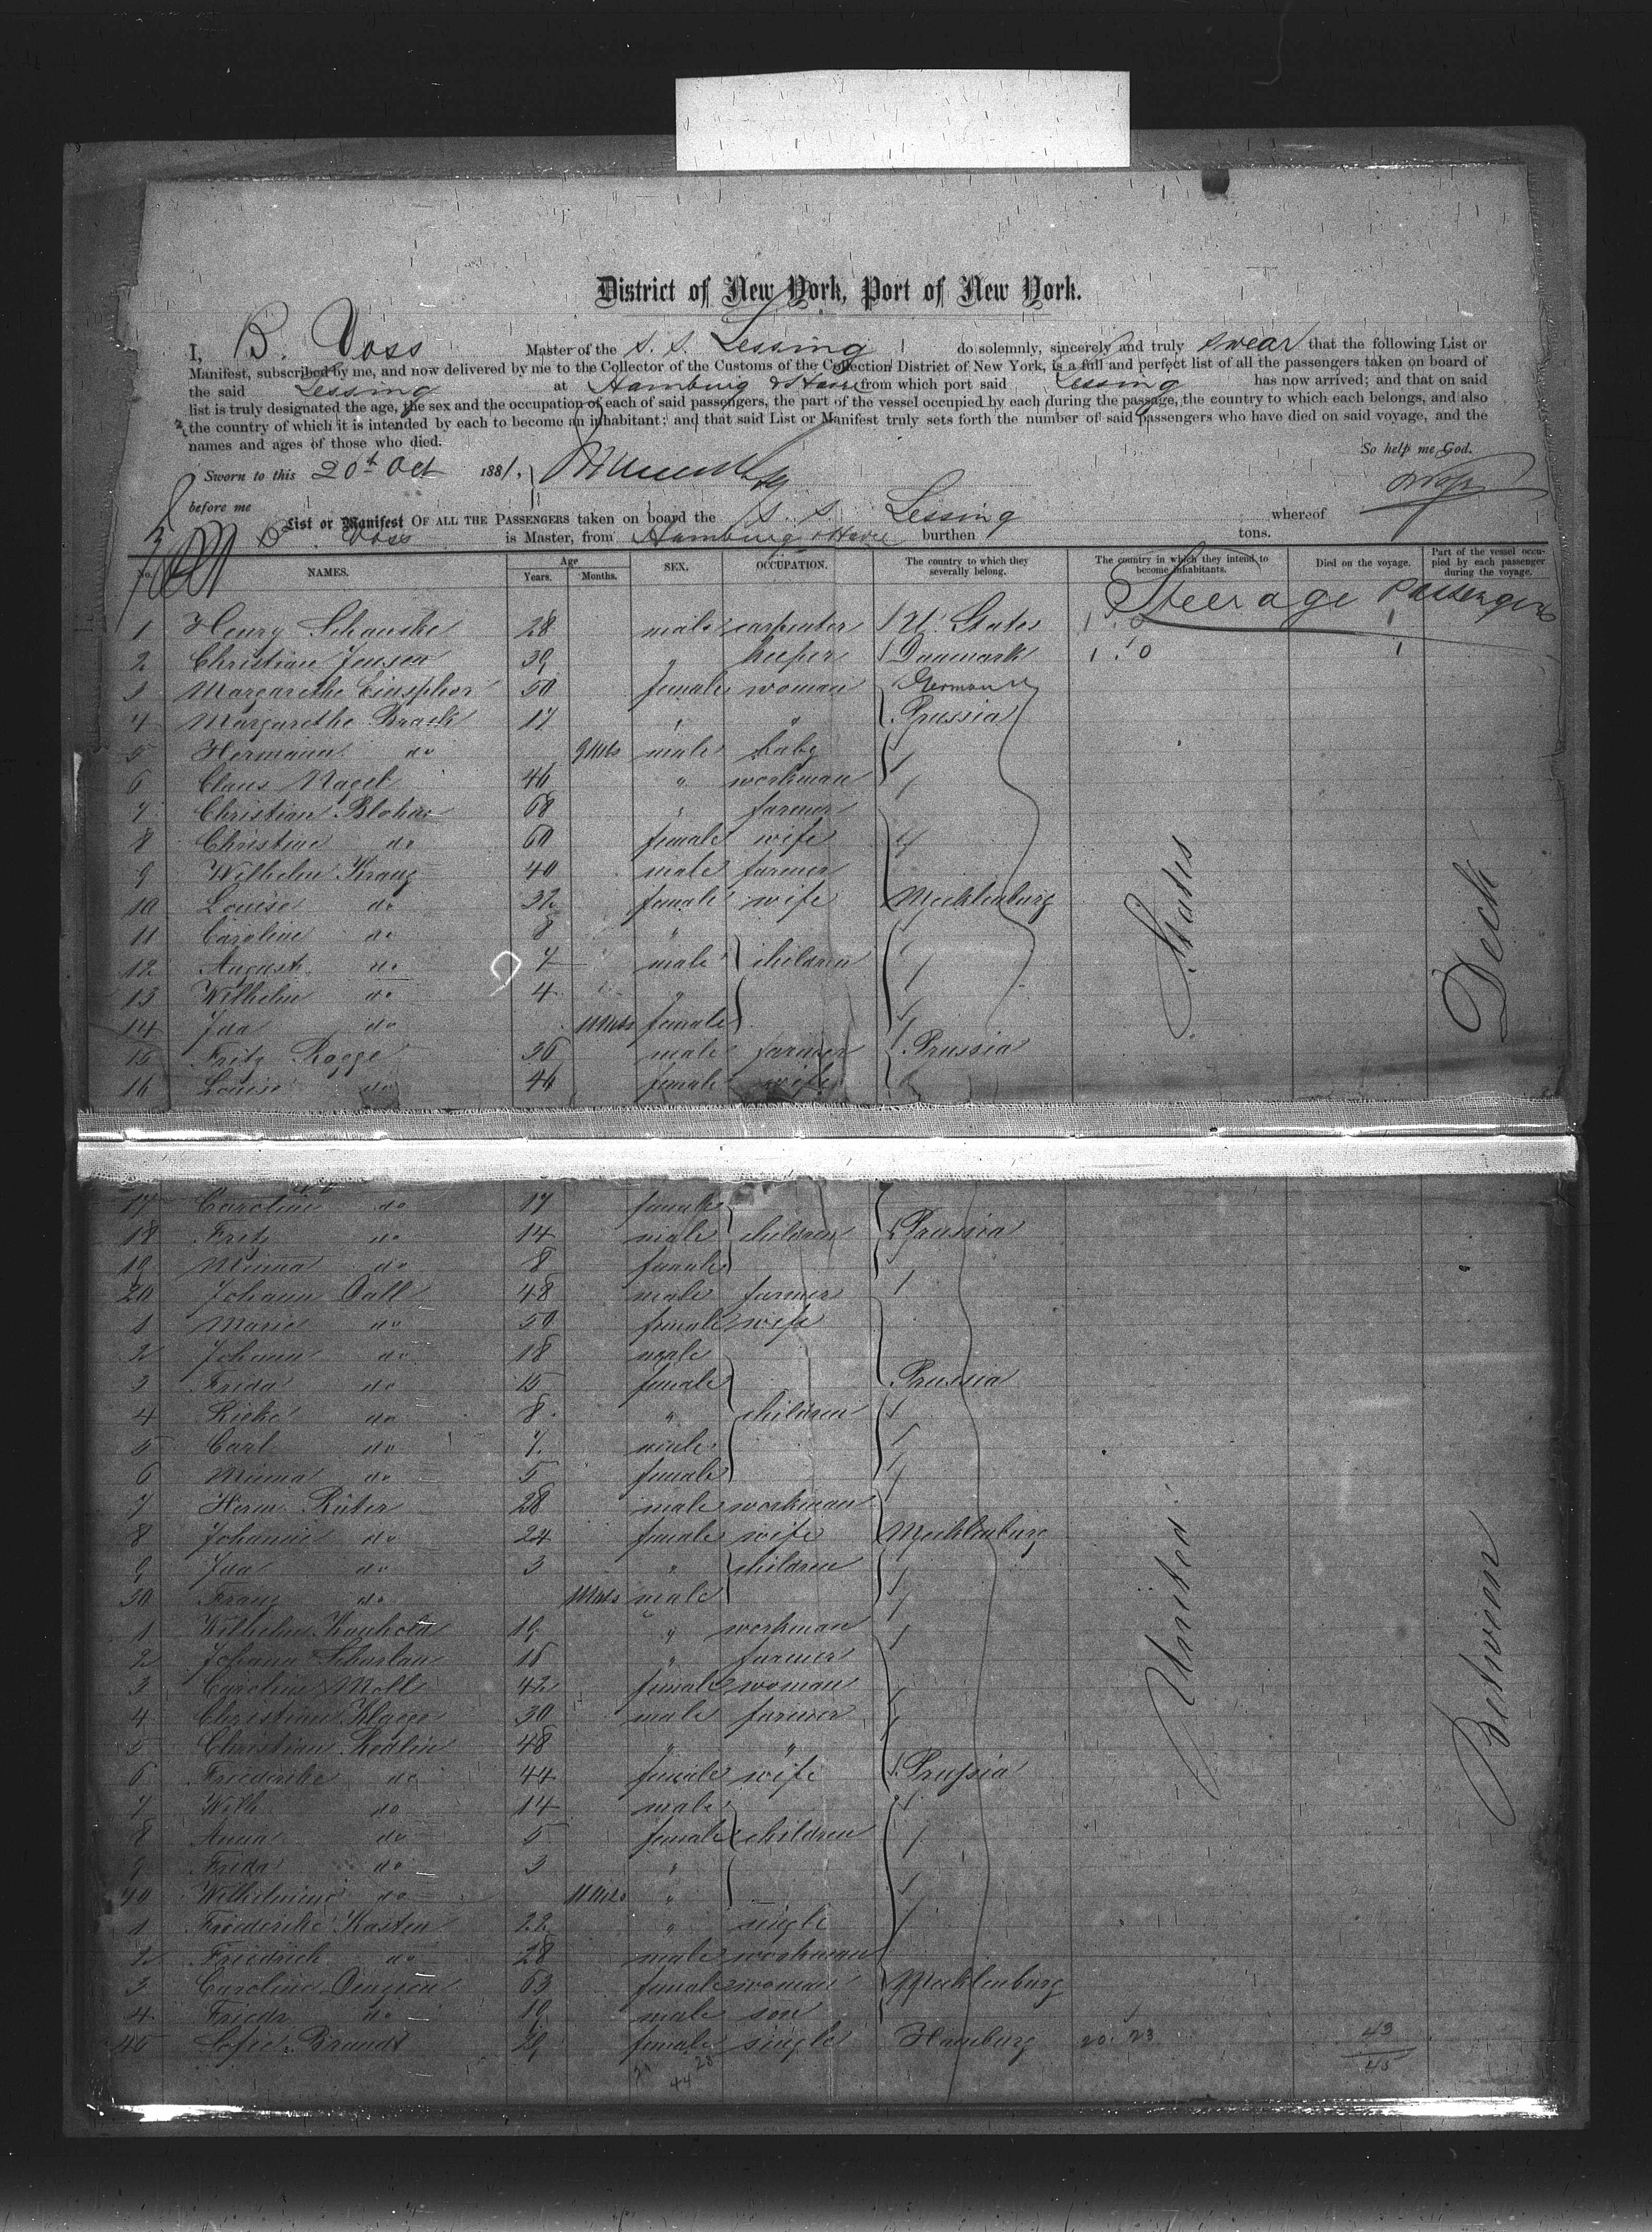 District of New York, Port of New York.
I, B. Voss Master of the S. S. Lessing do solemnly, sincerely and truly swear that the following List or
Manifest, subscribed by me, and now delivered by me to the Collector of the Customs of the Collection District of New York, is a full and perfect list of all the passengers taken on board of
the said Lessing at Hamburg & Havre from which port said Lessing has now arrived; and that on said
list is truly designated the age, the sex and the occupation of each of said passengers, the part of the vessel occupied by each during the passage, the country to which each belongs, and also
the country of which it is intended by each to become an inhabitant; and that said List or Manifest truly sets forth the number of said passengers who have died on said voyage, and the
names and ages of those who died.
So help me God.
Sworn to this 20t Oct 1881,
before me
List or Manifest OF ALL THE PASSENGERS taken on board the S. S. Lessing whereof
B Voss is Master, from Hamburg & Havre burthen tons.
No. NAMES. Age Years. Months. SEX. OCCUPATION. The country to which they severally belong. The country in which they intend to become inhabitants. Died on the voyage. Part of the vessel occupied by each passenger during the voyage.
Steerage Passengers
1 Henry 28 male carpenter U. States
2 Christian Jensen 39 " keeper Danemark
3 Margarethe 50 female woman Germany
4 Margarethe Brack 17 " " Prussia
5 Hermann do 9 Mts male baby
6 Claus Nagel 46 " workman
7 Christian Blohm 68 " farmer
8 Christine do 60 female wife
9 Wilhelm Kranz 40 male farmer
10 Louise do 32 female wife Mecklenburg
11 Caroline do 8 "
12 August do 7 male children
13 Wilhelm do 4 "
14 Ida do 11 Mts female
15 Fritz Rogge 36 male farmer Prussia
16 Louise do 46 female wife
17 Caroline do 17 female
18 Fritz do 14 male children Prussia
19 Minna do 8 female
20 Johann Dall 48 male farmer
1 Marie do 50 female wife
2 Johann do 18 male
3 Frida do 15 female Prussia
4 Rieke do 8 " children
5 Carl do 7 male
6 Minna do 5 female
7 Herm. Rüter 28 male workman
8 Johanne do 24 female wife Mecklenburg
9 Ida do 3 " children
30 Franz do 11 Mts male
1 Wilhelm Kauhold 19 " workman
2 Johann Scharlau 18 " farmer
3 Caroline Moll 42 female woman
4 Christian Klagge 30 male farmer
5 Christian Redlin 48 " "
6 Friederike do 44 female wife Prussia
7 Wilh do 14 male
8 Anna do 5 female children
9 Frida do 3 "
40 Wilhelmine do 11 Mts "
1 Friederike Kasten 22 " single
2 Friedrich do 28 male workman
3 Caroline 63 female woman Mecklenburg
4 Friedr do 19 male son
45 Sofie Brandt 29 female single Hamburg 20 23
43
45
44 28
United States
Between Deck